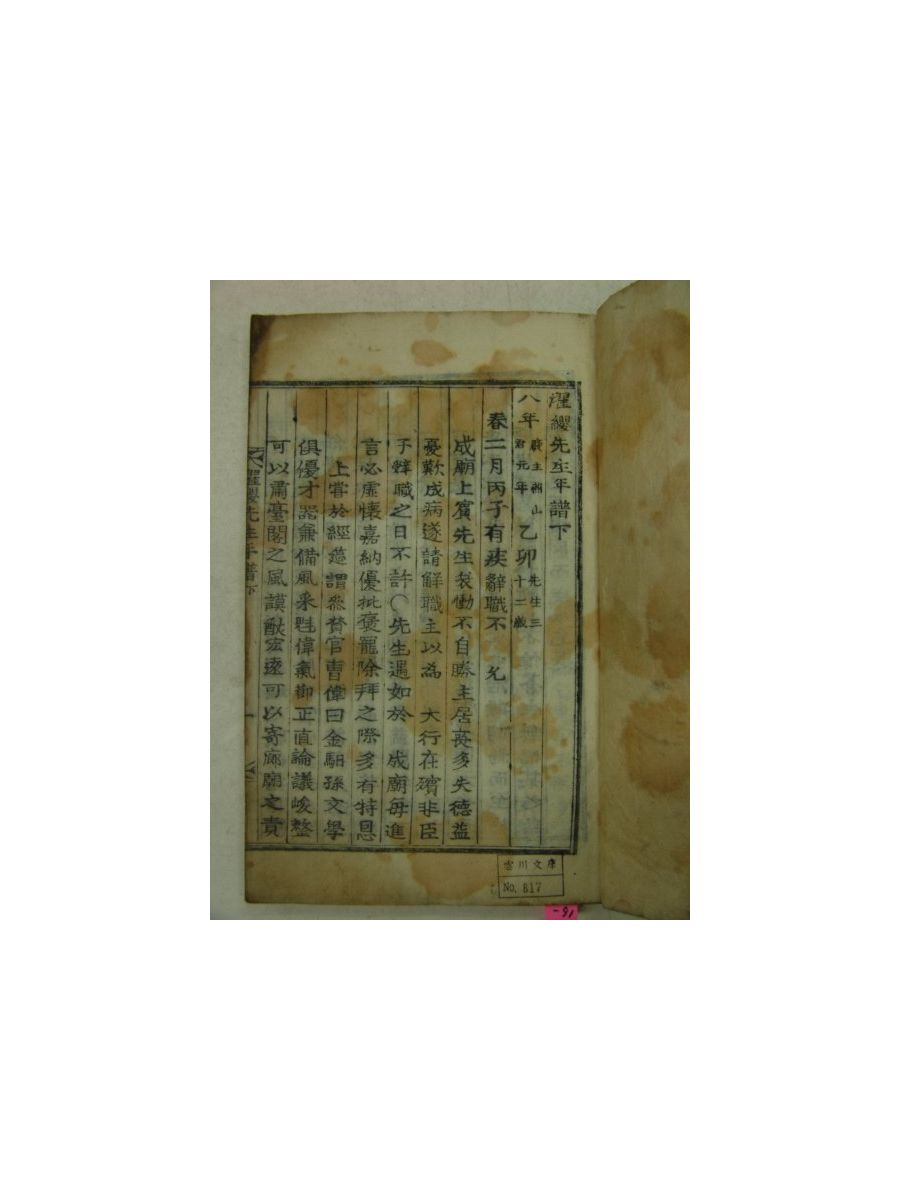 濯纓先生年譜下
八年 廢主燕山君元年 乙卯 先生三十二歲
春二月丙子有疾辭職不 允
成廟上賓先生哀慟不自勝主居喪多失德益
憂歎成病遂請解職主以為 大行在殯非臣
子辭職之日不許〇先生遇知於 成廟每進
言必虛懷嘉納優批褒寵除拜之際多有特恩
上嘗於經筵謂參贊官曺偉曰金馹孫文學
俱優才器兼備風采魁偉氣節正直論議峻整
可以肅臺閣之風謨猷宏遠可以寄廊廟之責
濯纓先生年譜下
一
雲川文庫
No. 817
-91